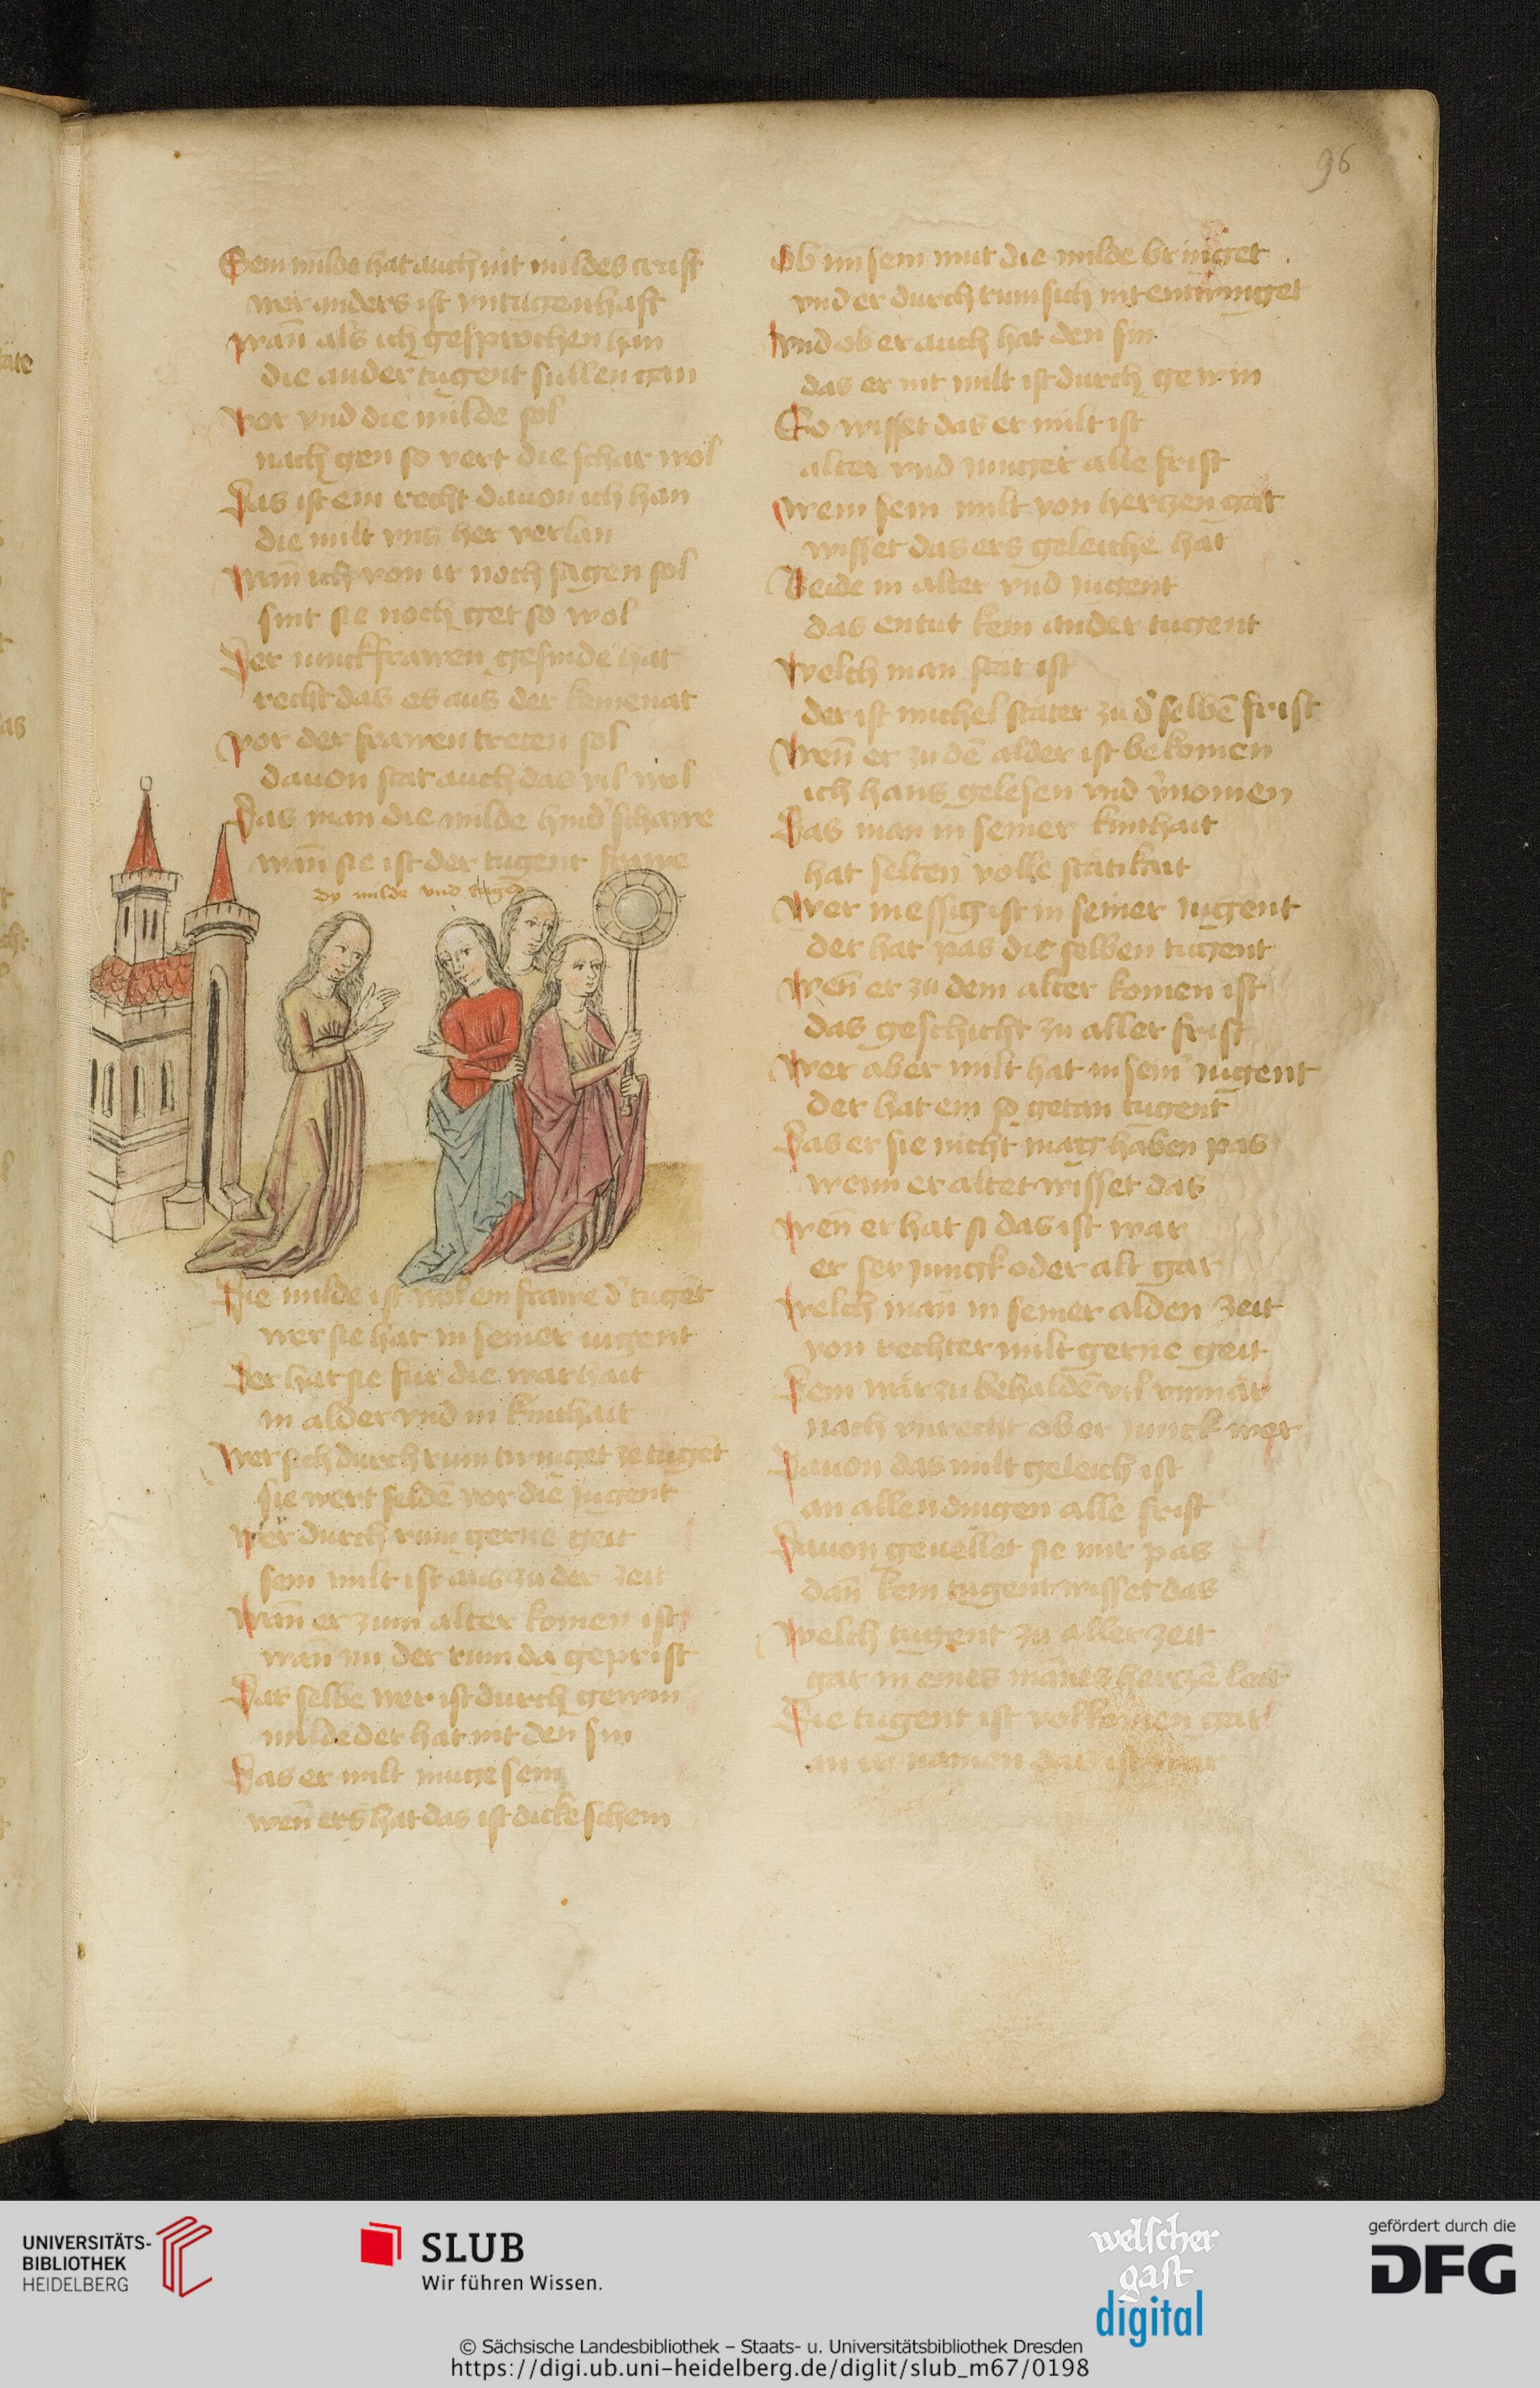 96
Sein milde hat auch nit mildes craft
wer anders ist vntugenhaft
wan̄ als ich gesprochen han
die ander tugent sullen gan
vor vnd die milde sol
nach gen so vert die schar wol
Das ist ein recht dauon ich han
die milt vns her verlan
wan̄ ich von ir noch sagen sol
sint sie noch get so wol
Der iunckfrawen gesinde hat
recht das es aus der kemenat
vor der frawen treten sol
dauon stat auch das vil wol
Das man die milde hind' schawe
wan̄ sie ist der tugent frawe
dy milde vnd tugend
Die milde ist wol ein frawe d' tugēt
wer sie hat in seiner iugent
Der hat sie fur die warhait
in alder vnd in kinthait
wer sich durch rum twinget ze tugēt
sie wert seldē vor die jugent
wer durch rum gerne geit
sein milt ist aus zu der zeit
wan̄ er zum alter komen ist
wan̄ im der rum da geprist
Das selbe wer ist durch gewin
milde der hat nit den sin
Das er milt muge sein
wen̄ ers hat das ist dicke schein
Ob im sein mut die milde bringet
vnd er durch rum sich nit entwinget
vnd ob er auch hat den sin
das er nit milt ist durch gewin
So wisset das er milt ist
alter vnd iunger alle frist
wem sein milt von herzen gat
wisset das ers geleiche hat
Beide in alter vnd jugent
das entut kein ander tugent
welch man stät ist
der ist michel stäter zu d' selbē frist
wen̄ er zu dē alder ist bekomen
ich hans gelesen vnd v'nomen
Das man in seiner kinthait
hat selten volle stätikait
wer messig ist in seiner jugent
der hat pas die selben tugent
wen̄ er zu dem alter komen ist
das geschicht zu aller frist
wer aber milt hat in sein' jugent
der hat ein so getan tugent
Das er sie nicht mag haben pas
wenn er altet wisset das
wen̄ er hat si das ist war
er sey jungk oder alt gar
welch man in seiner alden zeit
von rechter milt gerne geit
Dem wär zu behaldē vil vnmär
nach vnrecht ob er junck wer
Dauon das milt geleich ist
an allen dingen alle frist
Dauon geuellet sie mir pas
dan̄ kein tugent wisset das
welch tugent zu aller zeit
gar in eines mānes herzē leit
Die tugent ist volkomen gar
an ir namen das ist war
UNIVERSITÄTS-
BIBLIOTHEK
HEIDELBERG
SLUB
Wir führen Wissen.
welscher
gast
digital
gefördert durch die
DFG
© Sächsische Landesbibliothek – Staats- u. Universitätsbibliothek Dresden
https://digi.ub.uni-heidelberg.de/diglit/slub_m67/0198